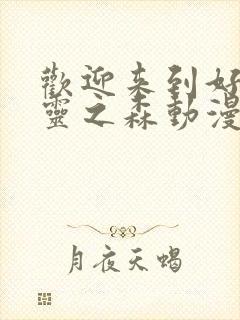 歡迎来到好
靈之森動漫
月夜天蝎